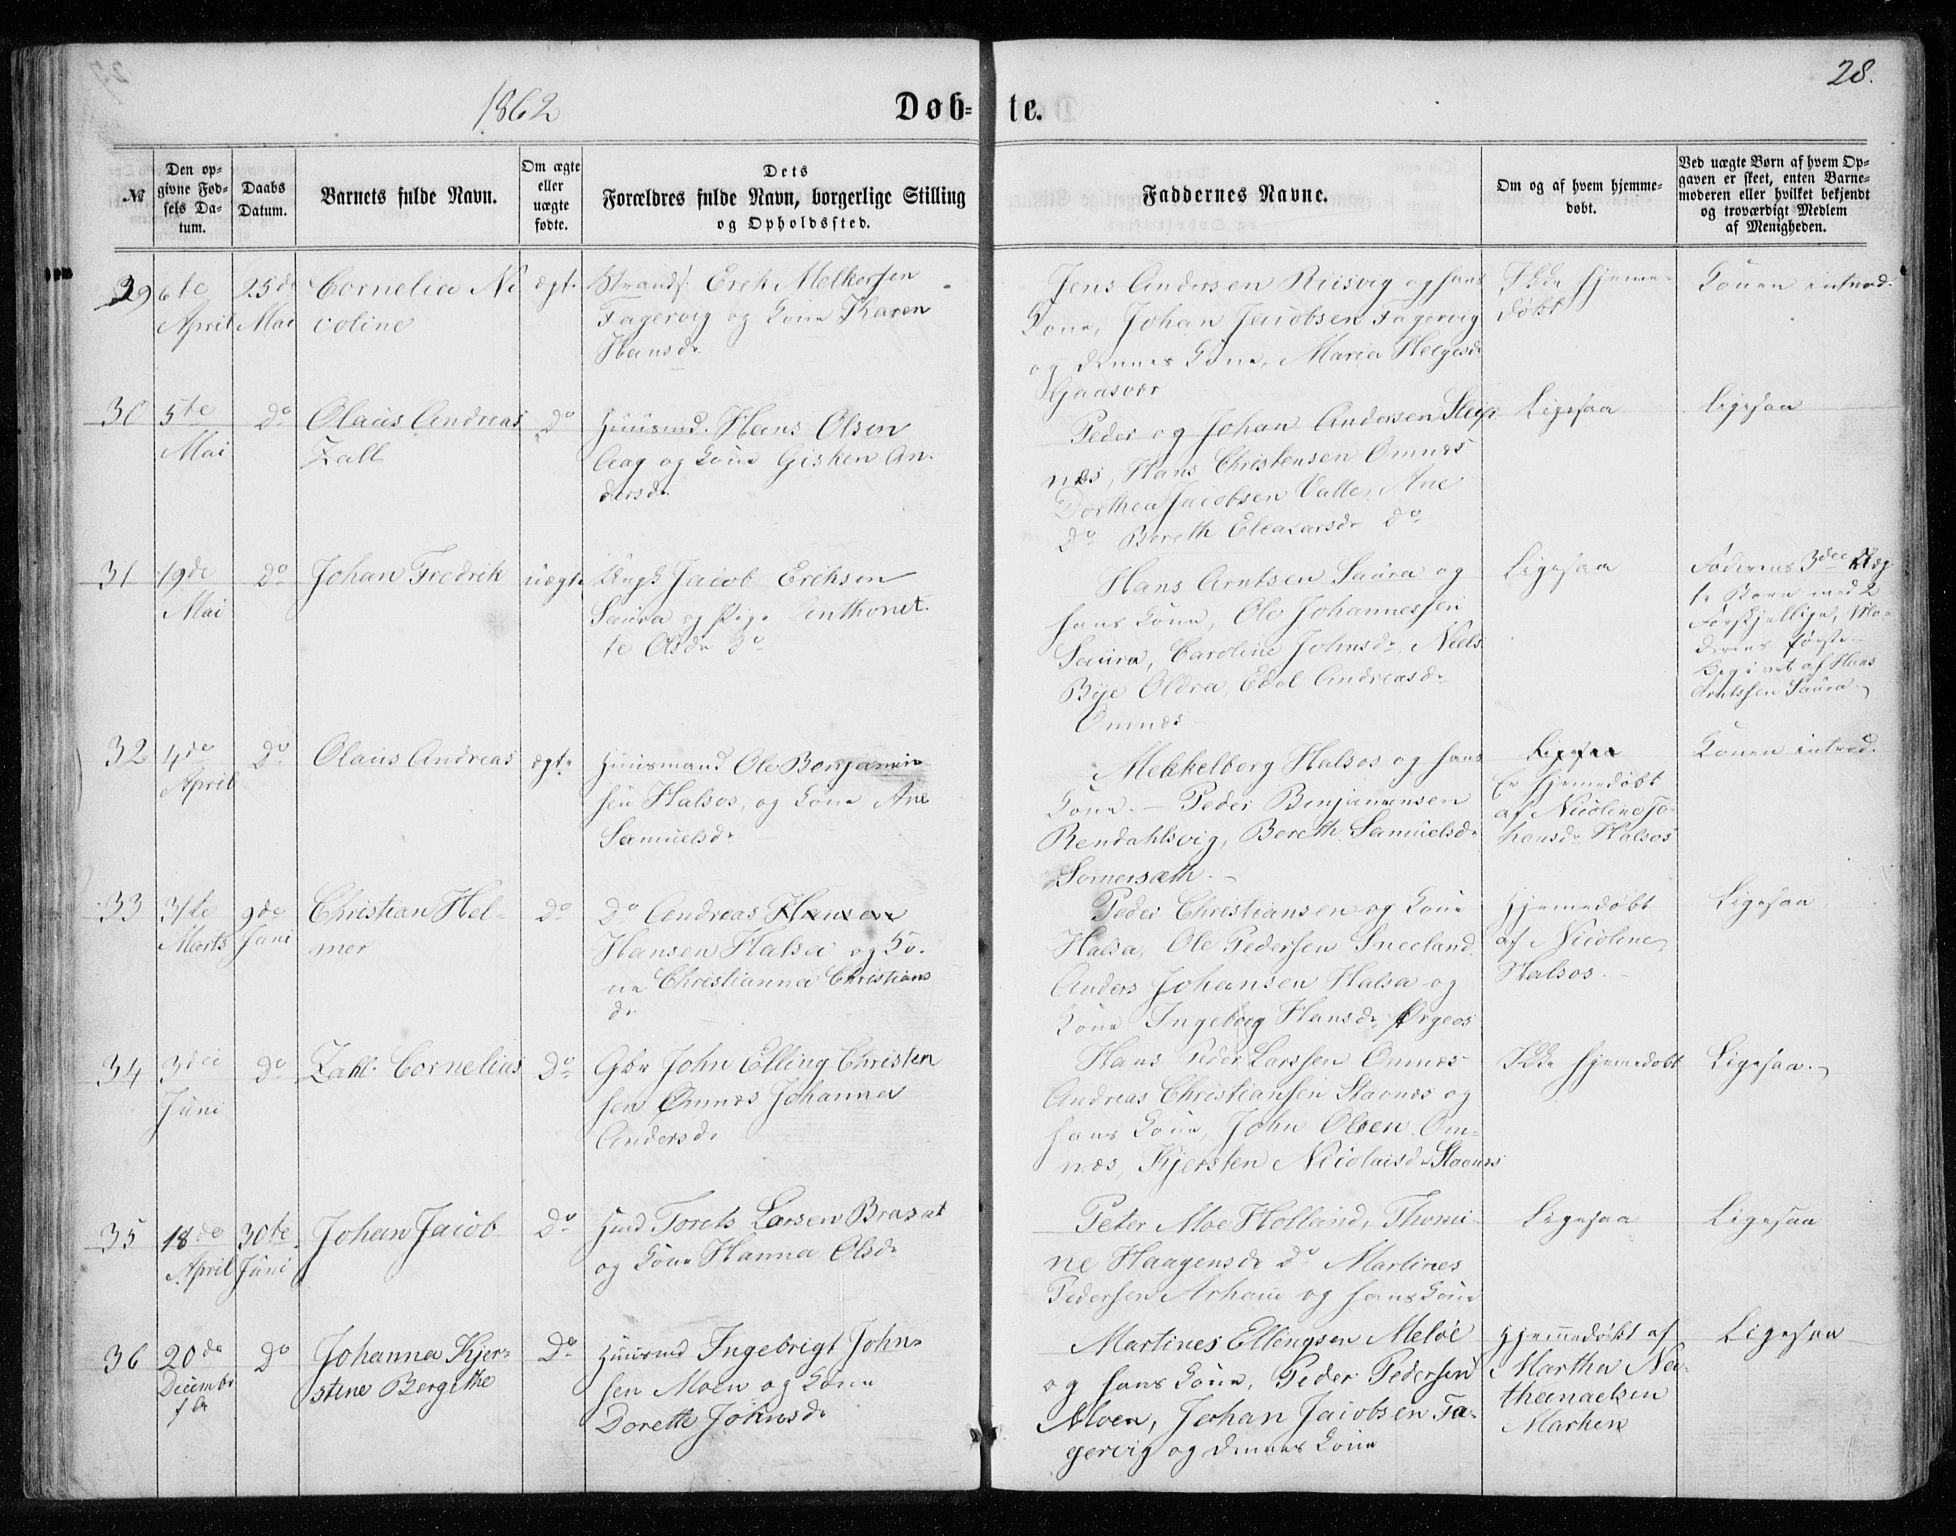 1862
Døb-
te.
28.
№
Den op-
givne Fød-
sels Da-
tum.
Daabs
Datum.
Barnets fulde Navn.
Om ægte
eller
uægte
fødte.
Dets
Forældres fulde Navn, borgerlige Stilling
og Opholdssted.
Faddernes Navne.
Om og af hvem hjemme-
døbt.
Ved uægte Børn af hvem Op-
gaven er skeet, enten Barne-
moderen eller hvilket bekjendt
og troværdigt Medlem
af Menigheden.
29
6te
April
25de
Mai
Cornelia Ni
coline
ægte
Strands. Erik Melkersen
Fagervig og Kone Karen
Hansdr
Jens Andersen Riisvig og hans
Kone, Johan Jacobsen Fagervig
og dennes Kone, Maria Helgesdr
Gaasvær
Ikke hjemme-
døbt
Konen introd.
30
5te
Mai
Do
Olaus Andreas
Zall
Do
Huusmd. Hans Olsen
Aag og Kone Gisken An-
dersdr
Peder og Johan Andersen Sleip
næs, Hans Christensen Omnæs
Dorthea Jacobsen Valle, Ane
Do Bereth Eleazarsdr Do
Ligesaa
Ligesaa
31
19de
Mai
Do
Johan Fredrik
uægte
Ungk Jacob Eriksen
Saura og Pige Anthonet-
te Olsdr Do
Hans Arntsen Saura og
hans Kone, Ole Johannessen
Saura, Caroline Johnsdr, Niels
Bye Oldra, Edel Andreasdr
Omnæs
Ligesaa
Faderens 3die Uæg
te Barn med 2
Forskjellige, Mo-
derens første
Begivet af Hans
Arntsen Saura
32
4de
April
Do
Olaus Andreas
ægte
Huusmand Ole Benjamin
sen Halsos, og Kone Ane
Samuelsdr
Mekkelborg Halsos og hans
Kone. - Peder Benjaminsen
Rendahlsvig, Bereth Samuelsdr
Somersæth.
Ligesaa
Er hjemmedøbt
af Nicoline Jo-
hansdr Halsos
Konen introd.
33
31te
Marts
9de
Juni
Christian Hel-
mer
Do
Do Andreas Hansen
Hansen Halsa og Ko-
ne Christianna Christians
dr
Peder Christiansen og Kone
Halsa, Ole Pedersen Sneeland,
Anders Johansen Halsa og
Kone Ingeborg Hansdr Ørgeos
Hjemmedøbt
af Nicoline
Halsos.
Ligesaa
34
3die
Juni
Do
Zahl Cornelius
Do
Gbr John Elling Christen
sen Omnæs Johanna
Andersdr
Hans Peder Larssen Omnæs
Andreas Christiansen Stavnæs og
hans Kone, John Olsen Om-
næs, Kjersten Nicolaisdr Stavnæs
Ikke hjemmedøbt
Ligesaa.
35
18de
April
30te
Juni
Johan Jacob
Do
Hmd Torets Larsen Brasæt
og Kone Hanna Olsdr
Peter Moe Holland, Thomi-
ne Haagensdr Do Martines
Pedersen Arhaug og hans Kone
Ligesaa
Ligesaa
36
20de
Decembr
f. Aa
Do
Johanna Kjer-
stine Bergithe
Do
Huusmd Ingebrigt John-
sen Moen og Kone
Dorette Johnsdr
Martines Ellingsen Meløe
og hans Kone, Peder Pedersen
Moen, Johan Jacobsen Fa-
gervig og dennes Kone
Hjemmedøbt af
Martha Na-
thanaelsen
Marken
Ligesaa